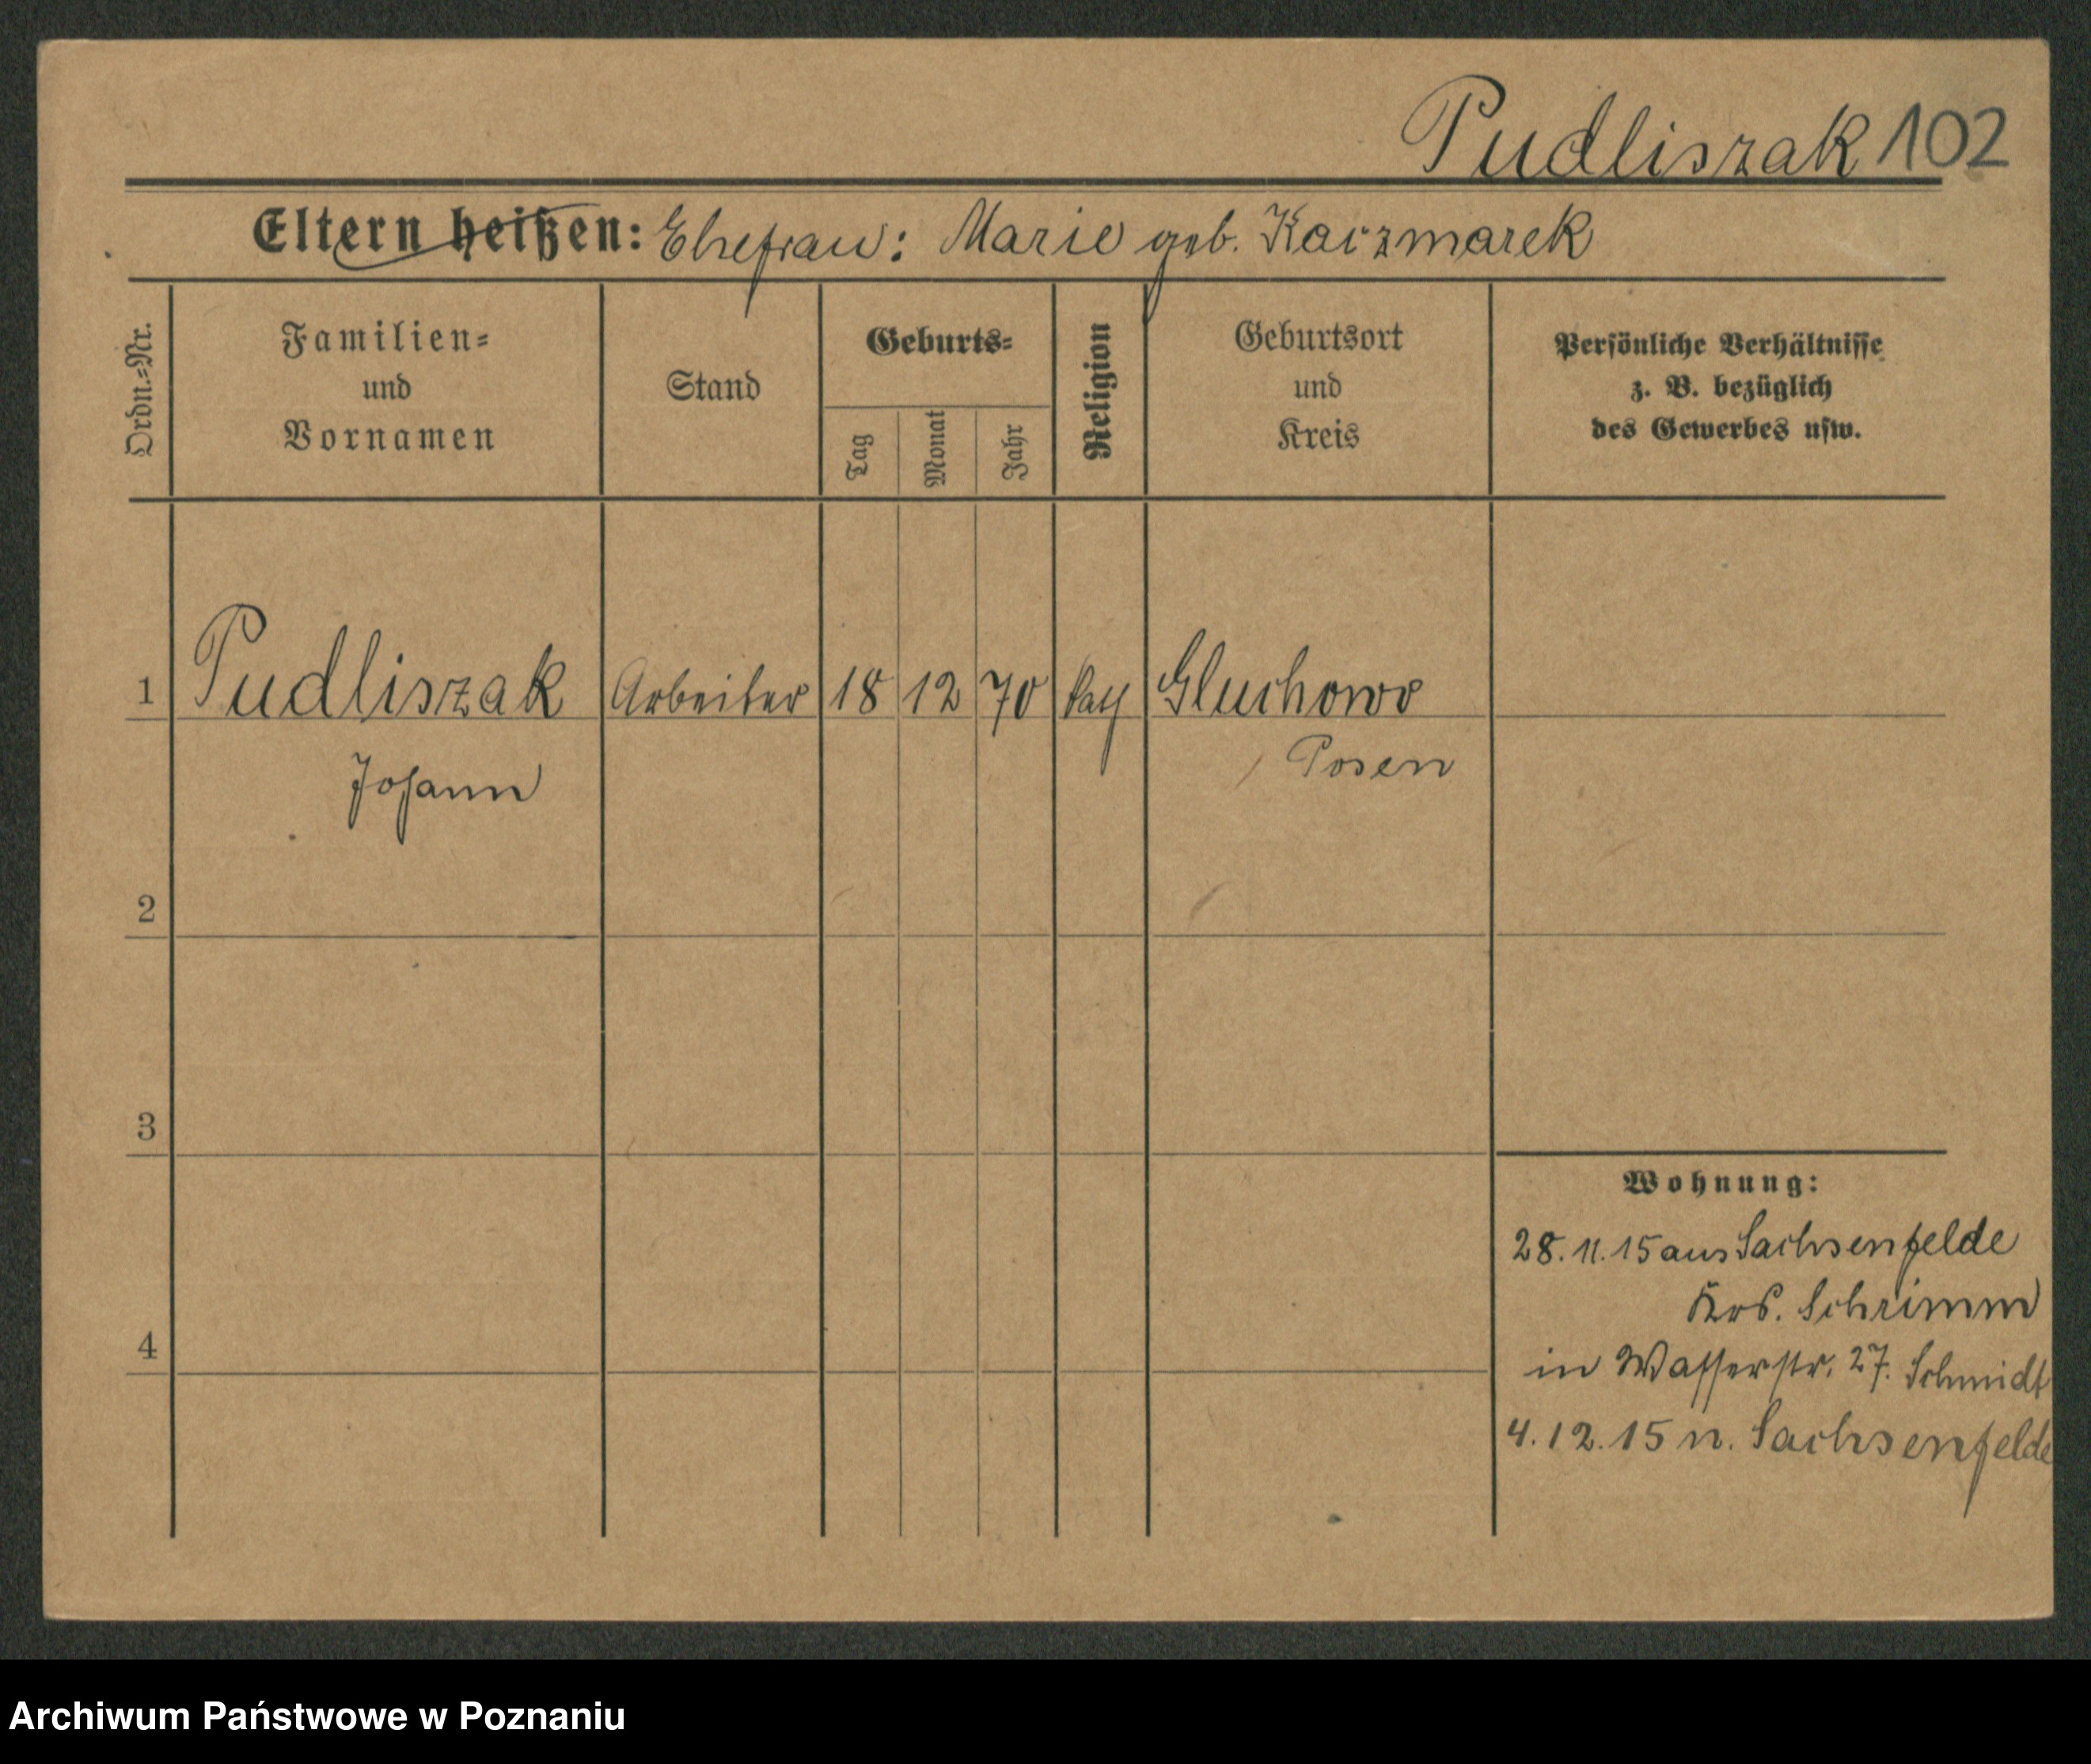 Pudliszak 102
Eltern heißen: Ehefrau: Marie geb. Kaczmarek
Ordn.-Nr.
Familien-
und
Vornamen
Stand
Geburts-
Tag
Monat
Jahr
Religion
Geburtsort
und
Kreis
Persönliche Verhältnisse
z. B. bezüglich
des Gewerbes usw.
1 Pudliszak Arbeiter 18 12 70 kath Gluchowo
Johann Posen
2
3
4
Wohnung:
28.11.15 aus Sachsenfelde
Krs. Schrimm
in Wasserstr. 27. Schmidt
4.12.15 n. Sachsenfelde
Archiwum Państwowe w Poznaniu